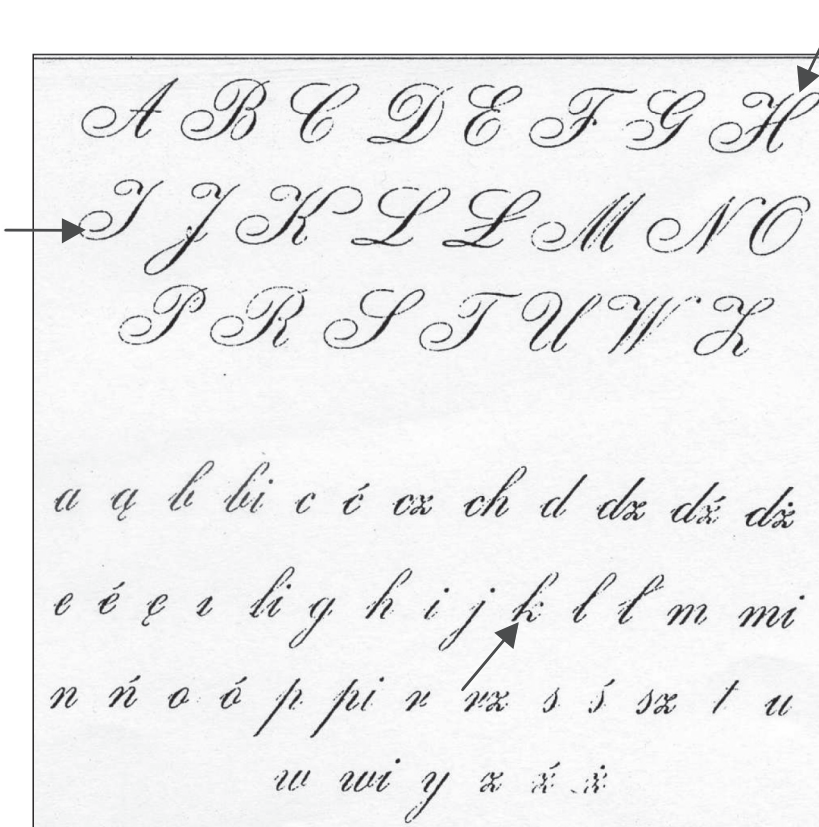 A B C D E F G H
I J K L Ł M N O
P R S T U W Z
a ą b bi c ć cz ch d dz dź dż
e é ę g h i j k l ł m mi
n ń o ó p pi r rz s ś sz t u
w wi y z ź ż